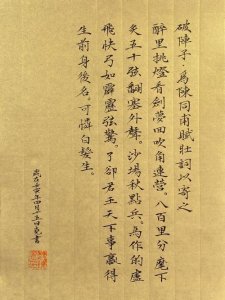 破陣子·為陳同甫賦壯詞以寄之
醉里挑燈看劍夢回吹角連營。八百里分麾下
炙五十弦翻塞外聲。沙場秋點兵。馬作的盧
飛快弓如霹靂弦驚。了卻君王天下事贏得
生前身後名。可憐白髮生。
歲在壬寅年四月十五日書